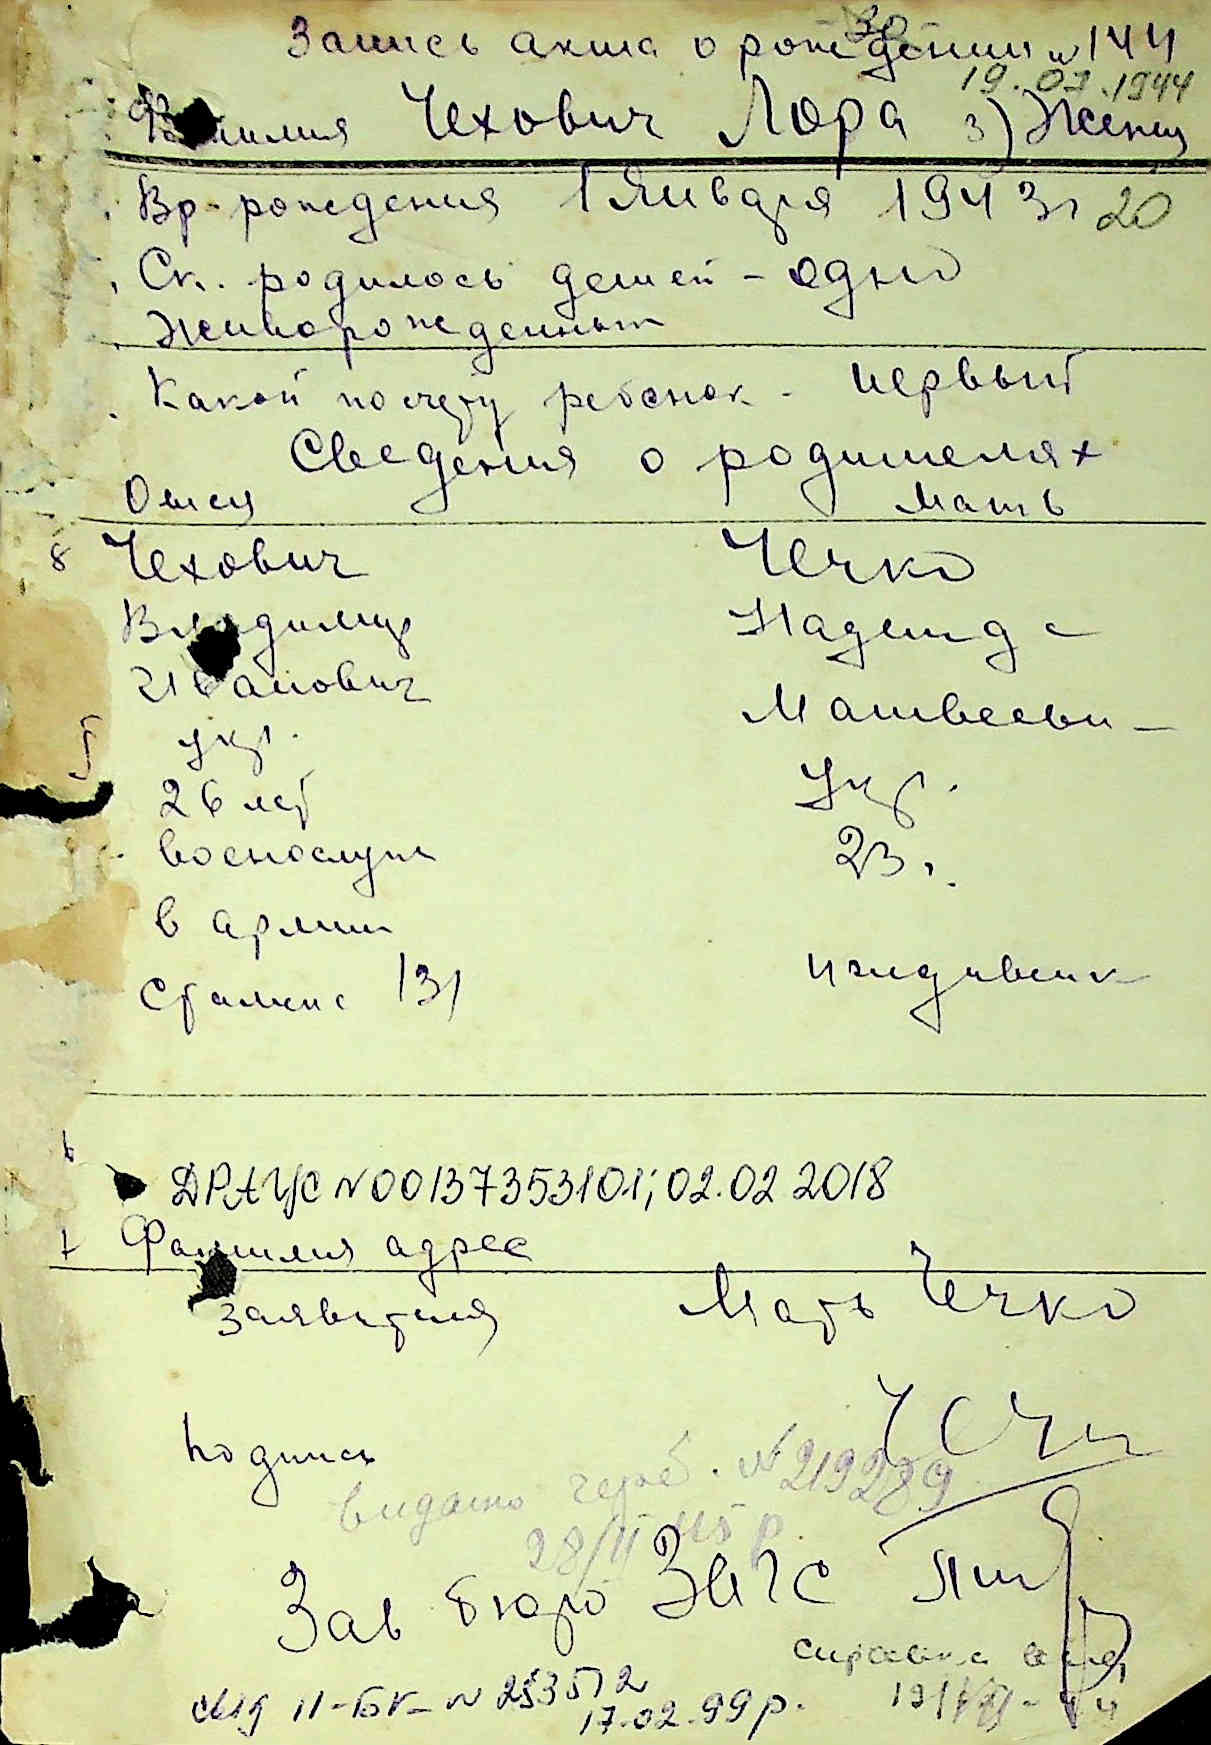 30
Запись акта о рождении № 144
19.07.1944
Фамилия Чехович Лора 3) Женщ
Вр. рождения 1 Января 1943 г 20
Ск. родилось детей - одно
Живорожденных
Какой по счету ребенок - первый
Сведения о родителях
Отец Мать
8 Чехович Чечко
Владимир Надежда
Иванович Матвеевн
укр. Укр.
26 лет 23 г.
военослуж
в армии
Сталина 131 иждивенк
ДРАЦС N00137353101; 02.02 2018
Фамилия адрес
заявителя Мать Чечко
Подпись
видано N 219289
28/II 45 р
Зав бюро ЗАГС
справка
II-БК-N 233512
17.02.99 р.